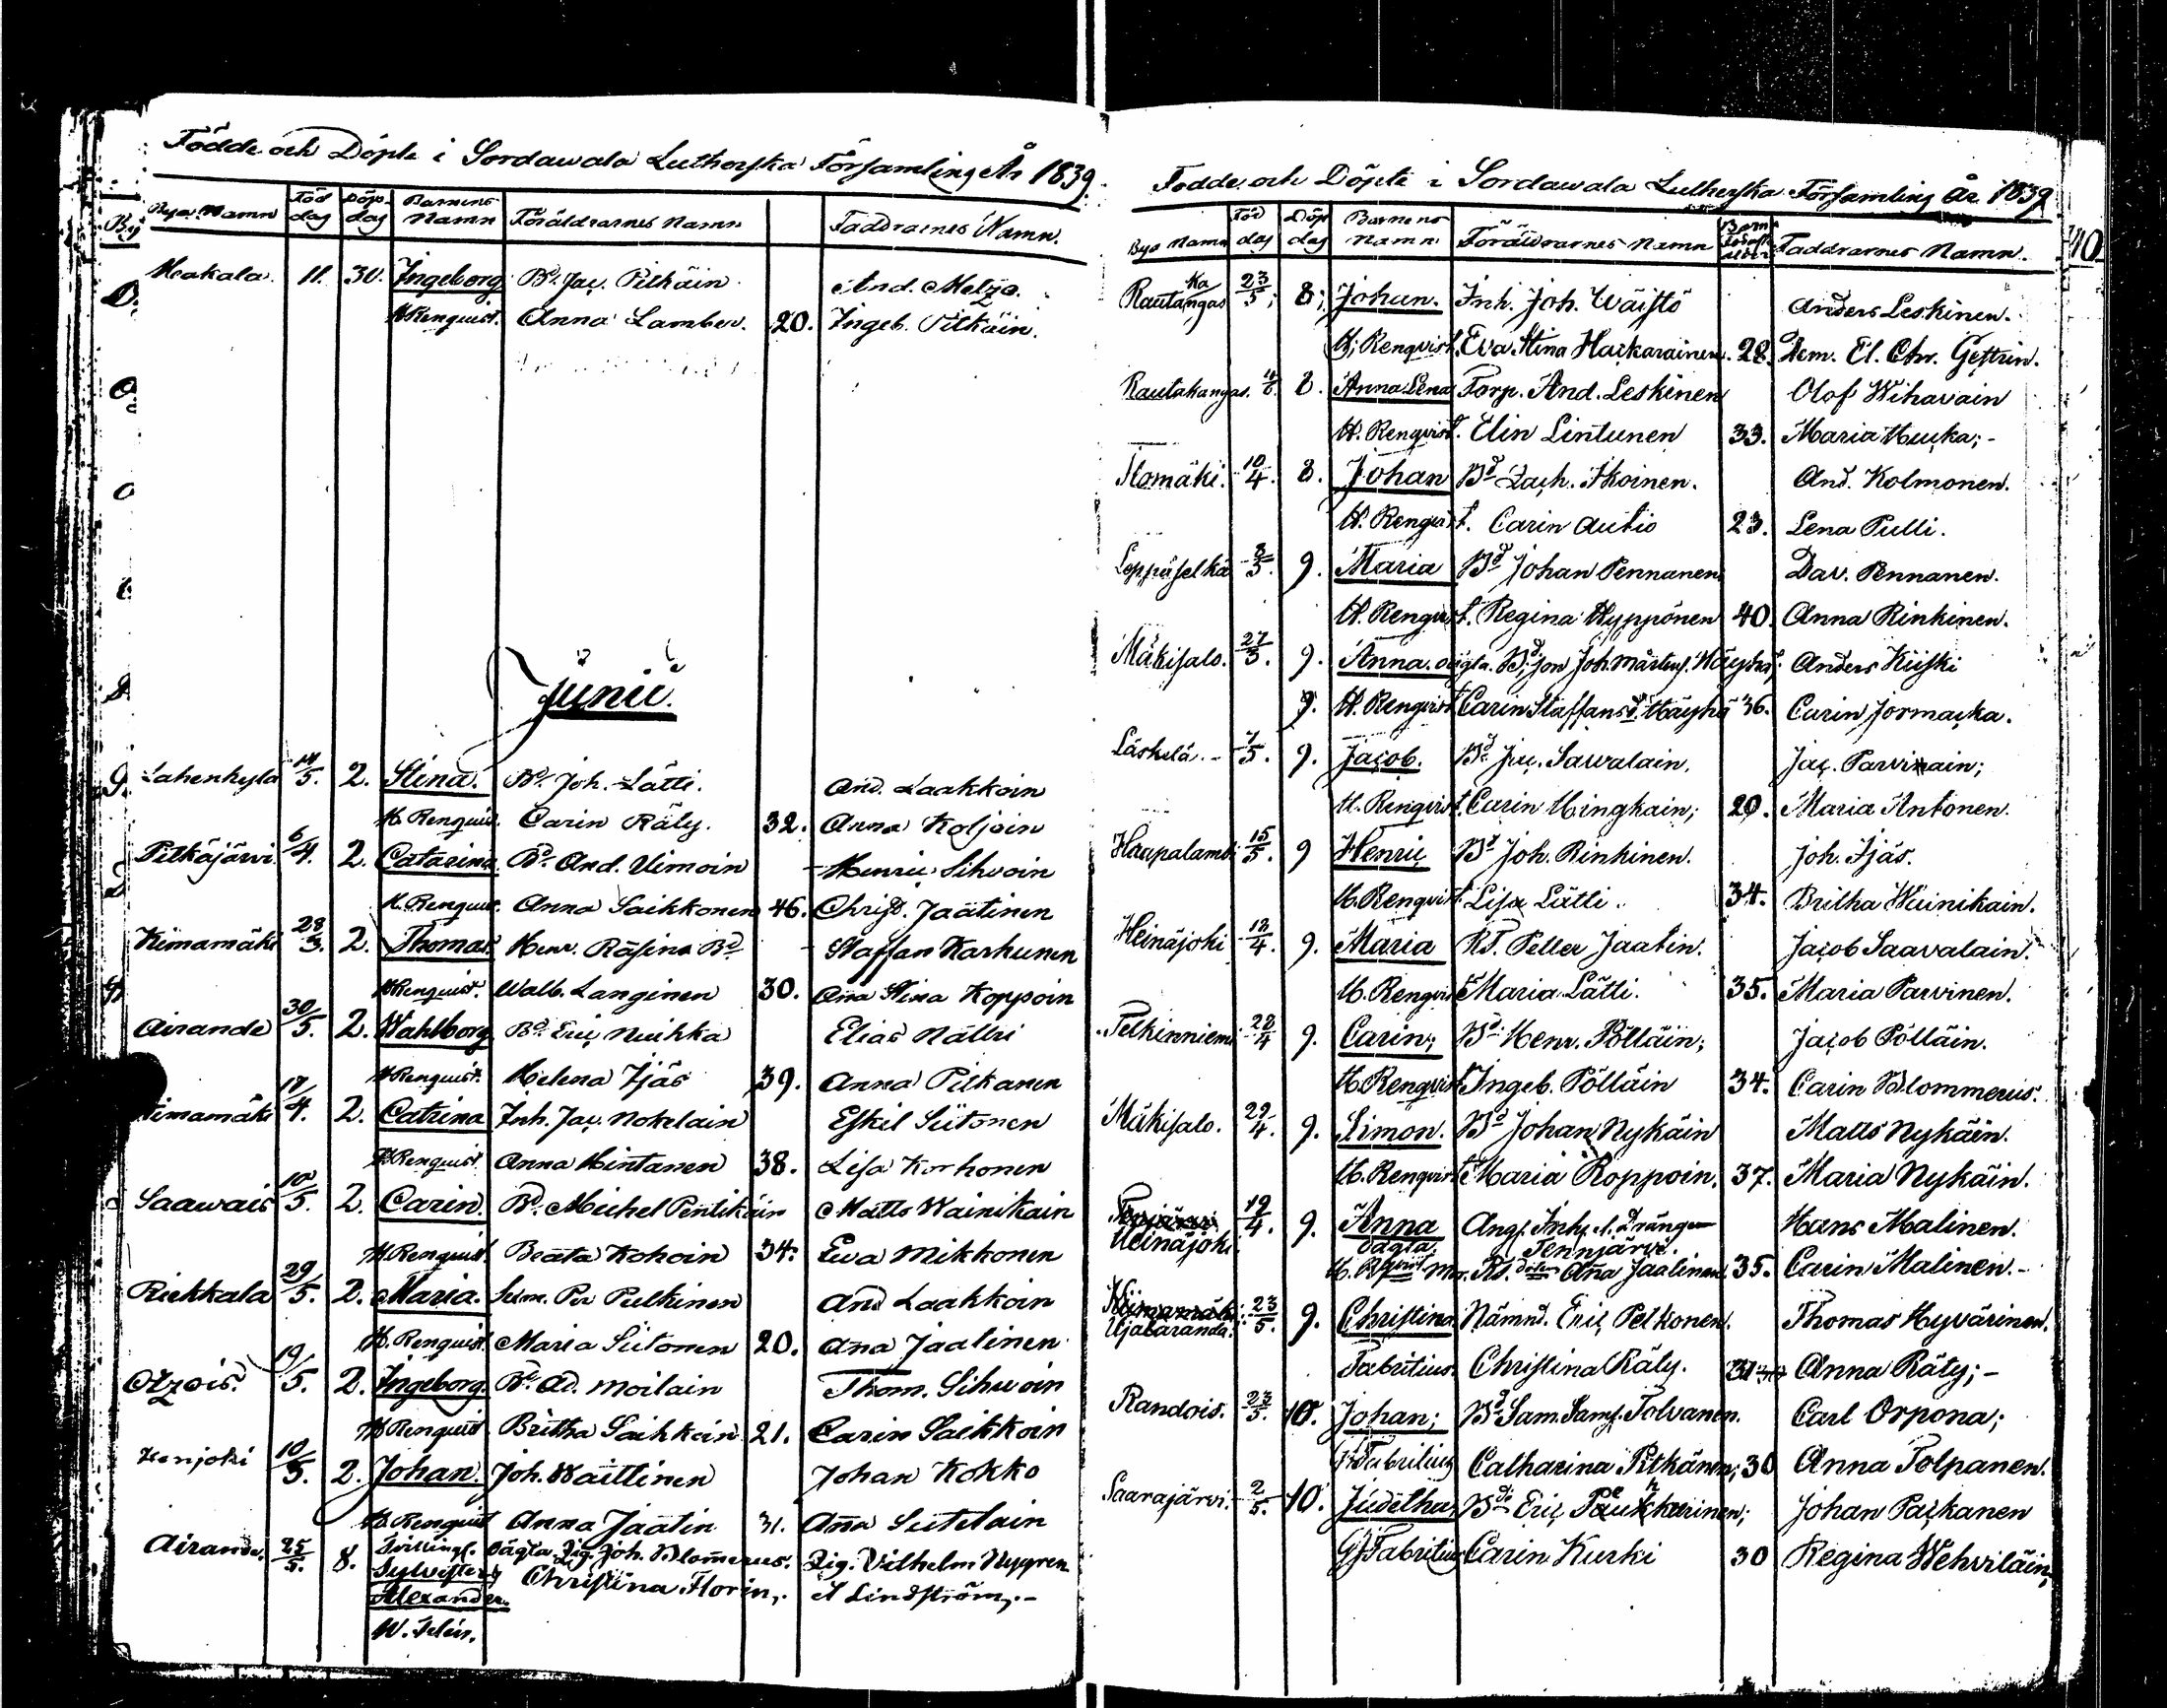 Födde och Döpte i Sordawala Lutherska Församling År 1839.
Bya Namn Föd dag Döp dag Barnens Namn Föräldrarnes Namn Faddrarnes Namn.
Haakala. 11. 30. Ingeborg Bd. Jac. Pitkäin And. Melzo.
H. Renquist. Anna Lamber. 20. Ingeb. Pitkäin.
Junii.
Lahenkylä 14/5. 2. Stina. Bd. Joh. Lätti. And. Laakkoin
H. Renquist. Carin Räty. 32. Anna Koljoin
Pitkäjärvi 6/4. 2. Catarina Bd. And. Uimoin Henric Sihvoin
H. Renquist. Anna Saikkonen 46. Christ. Jaatinen
Kimamäki 28/3. 2. Thomas Henr. Räsine Bd. Staffan Karhunen
H. Renquist. Walb. Langinen 30. Ana Stina Koppoin
Airanda 30/5. 2. Wahlborg Bd. Eric Nuikka Elias Nätti
H. Renquist. Helena Ijäs 39. Anna Pitkanen
Kimamäki 17/4. 2. Catrina Inh. Jac. Nokelain Eskil Siitonen
H. Renquist. Anna Hintanen 38. Lisa Korhonen
Saawais 10/5. 2. Carin. Bd. Michel Pentikäin Matts Wainikain
H. Renquist. Beata Kohoin 34. Eva Mikkonen
Riekkala 29/5. 2. Maria. Pr Pulkinen And Laakkoin
H. Renquist. Maria Siitonen 20. Ana Jaatinen
Otzois. 19/5. 2. Ingeborg. Bd. Ad. Moilain Thom. Sihvoin
H. Renquist Britha Saikkoin 21. Carin Saikkoin
Kenjoki 10/5. 2. Johan. Joh. Waittinen Johan Kokko
H. Renquist Anna Jaatin 31. Ana Siitelain
Airanda. 25/5. 8. Tvillingf. oägta Pig. Joh. Blomerus. Pig. Vilhelm Nygren
Sylvester Christina Florin, A Lindström,-
Alexander.
Födde och Döpte i Sordawala Lutherska Församling År 1839
Bya Namn Föd dag Döp dag Barnens Namn Föräldrarnes Namn Faddrarnes Namn.
Rautakangas 23/5; 8; Johan. Inh. Joh. Wäistö Anders Leskinen.
H; Renqvist. Eva Stina Haikarainen. 28. Dem. El. Chr. Gestrin.
Rautakangas. 8. Anna Lena Torp. And. Leskinen Olof Wihavain
H. Renqvist. Elin Lintunen 33. Maria Hucka;-
Ilomäki. 10/4. 8. Johan Bd Zach. Ikoinen. And. Kolmonen.
H. Renqvist. Carin Autio 23. Lena Pulli.
Leppäselkä 8/5. 9. Maria Bd Johan Pennanen Dav. Pennanen.
H. Renqvist. Regina Hyppönen 40. Anna Rinkinen.
Mäkisalo. 27/3. 9. Anna. oägta. Bd; son Joh. Mårtens. Käyhkö; Anders Kiiski
9. H. Renqvist Carin Staffansd. Häyhä 36. Carin Jormacka.
Läskelä.- 7/5. 9. Jacob. Bd Jac. Sawalain. Jac. Parvinain;
H. Renqvist. Carin Hingkain; 20. Maria Antonen.
Haapalambi 15/5. 9 Henric Bd Joh. Rinkinen. Joh. Ijäs.
H. Renqvist Lisa Lätti. 34. Britha Wäinikain.
Heinäjoki 12/4. 9. Maria Rt. Petter Jaatin. Jacob Saavalain.
H. Renqvist Maria Lätti. 35. Maria Parvinen.
Telkinniemi 28/4 9. Carin; Bd Henr. Pölläin; Jacob Pölläin.
H. Renqvist Ingeb. Pölläin 34. Carin Blommerus.
Mäkisalo. 29/4. 9. Simon. Bd Johan Nykäin Matts Nykäin.
H. Renqvist Maria Roppoin. 37. Maria Nykäin.
Heinäjoki 19/4. 9. Anna Ang. Inh. d. Drängen Hans Malinen.
oägta. Tennjärvi.
H. Rqvist Rt. doter Ana Jaatinen 35. Carin Malinen.-
Hjalaranda. 23/5. 9. Christina Nämnd. Eric Petkonen. Thomas Hyvärinen.
Fabritius. Christina Räty. 31 Anna Räty;-
Randois. 23/5. 10. Johan; Bd Sam. Sams. Tolvanen. Carl Orpona;
Fabritius Catharina Pitkänen; 30 Anna Tolpanen.
Saarajärvi. 2/5. 10. Judetha Bd Eric Paukkurinen; Johan Packanen
G J Fabritius Carin Kurki 30 Regina Wehviläin;